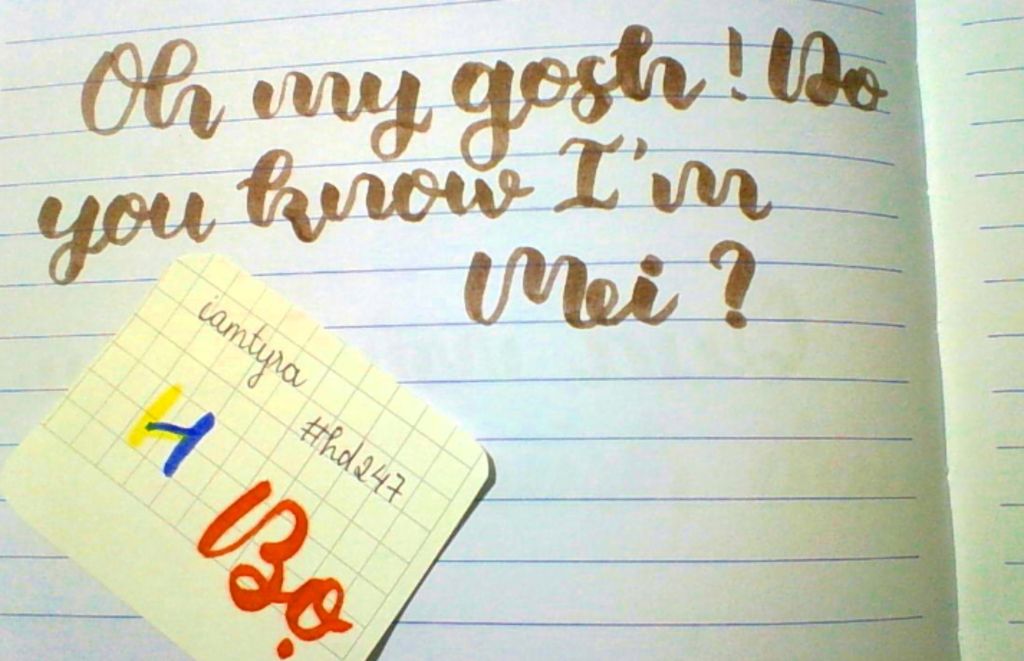 Oh my gosh! Do
you know I'm
Mei?
iamtyra
#hd247
H
Bọ